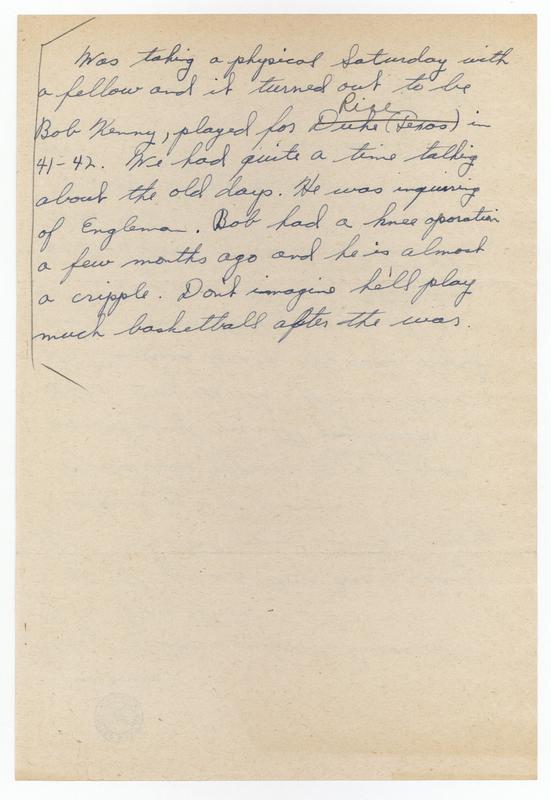 Was taking a physical Saturday with
a fellow and it turned out to be
Rice
Bob Kenny, played for Duke (Texas) in
41-42. We had quite a time talking
about the old days. He was inquiring
of Engleman. Bob had a knee operation
a few months ago and he is almost
a cripple. Don't imagine he'll play
much basketball after the war.